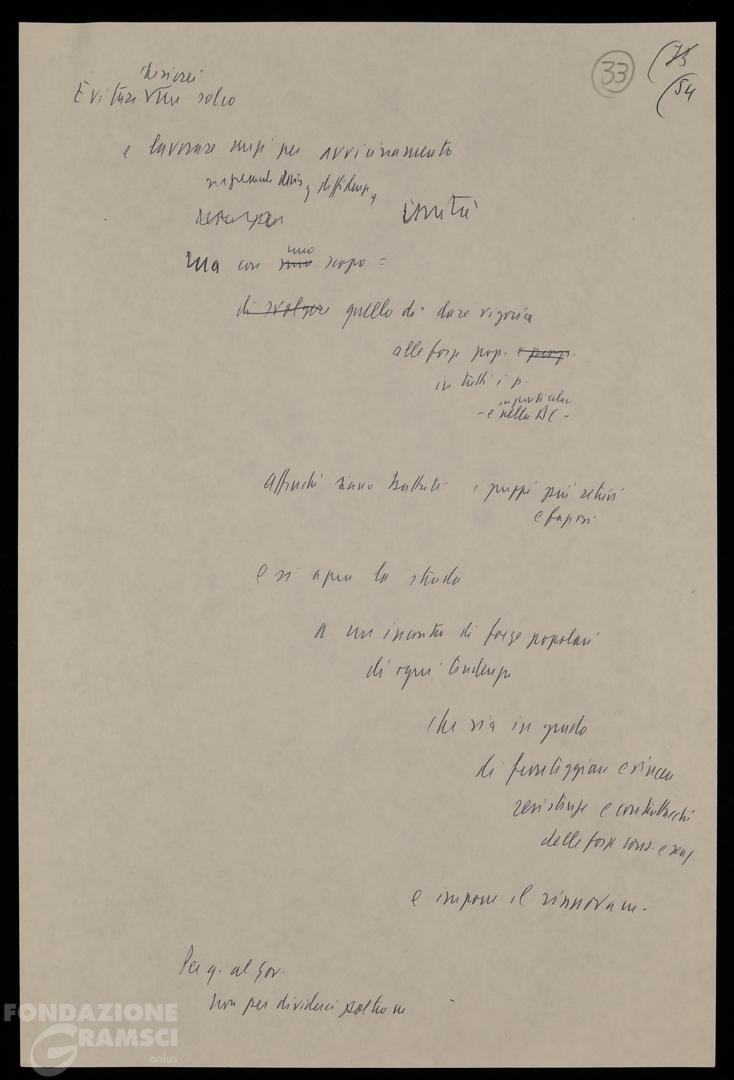 33
(75
(54
Evitare solco
e lavorare unp per avvicinamento
superando divis, diffidenz,
unità
Ma con uno scopo =
di svolgere quello di dare vigoria
alle forze pop.
in tutti i p.
in particolare
- e nella DC -
Affinché siano battuti i gruppi più retrivi
e faziosi
e si apra la strada
a un incontro di forze popolari
di ogni tendenza
che sia in grado
di fronteggiare e vincere
resistenze e contrattacchi
delle forze cons. e reaz.
e imporre il rinnovam.
Per q. al gov.
non per dividerci poltrone
FONDAZIONE
GRAMSCI
onlus